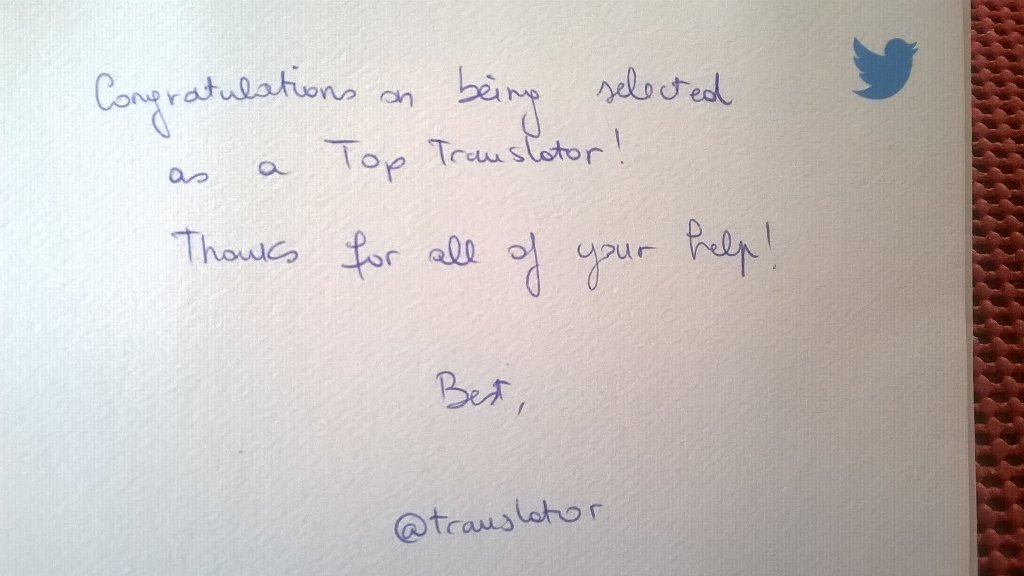 Congratulations on being selected
as a Top Translator!
Thanks for all of your help!
Best,
@translator